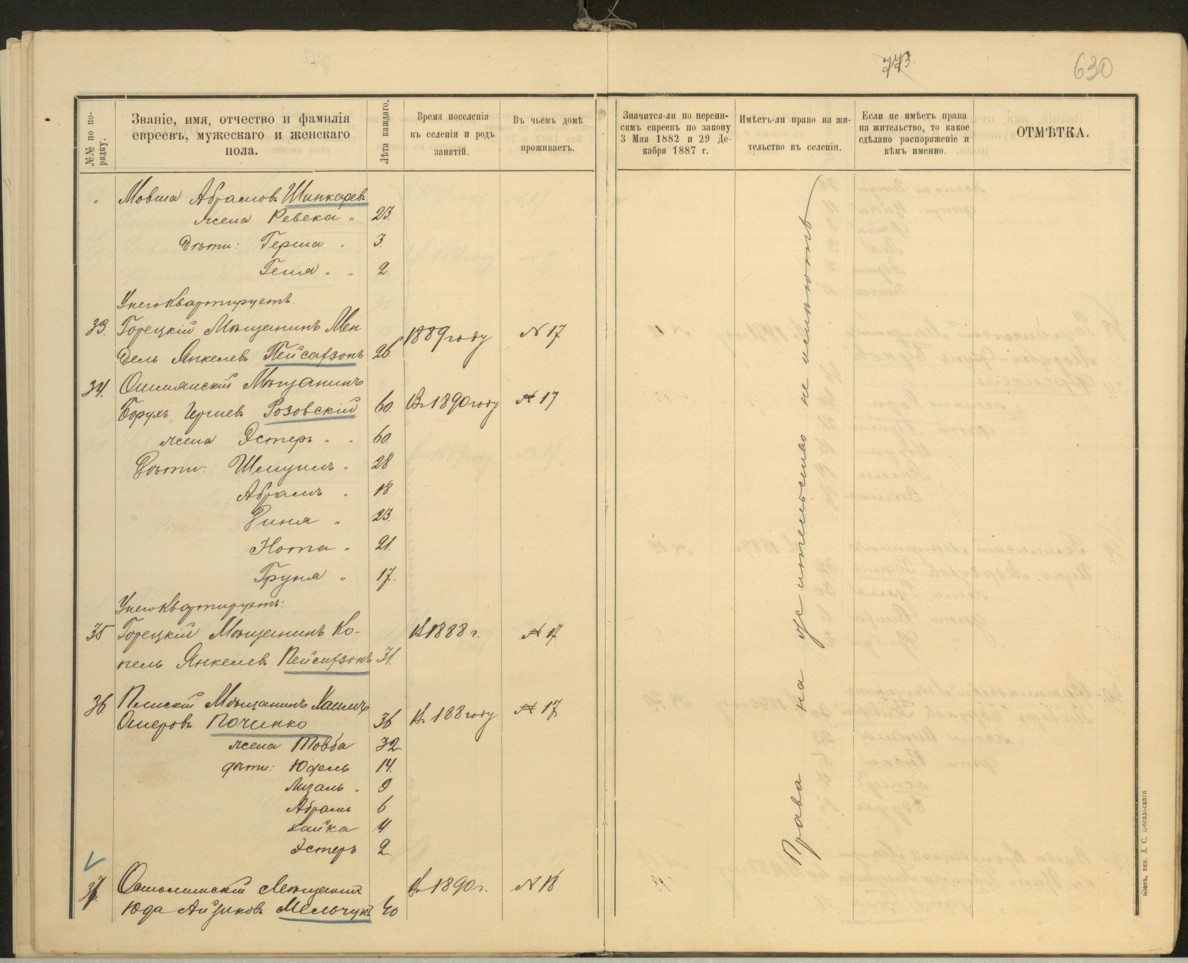 773
630
№№ по порядку.
Званіе, имя, отчество и фамилія
евреевъ, мужескаго и женскаго
пола.
Лѣта каждаго.
Время поселенія
въ селеніи и родъ
занятій.
Въ чьемъ домѣ
проживаетъ.
Значится-ли по перепи-
сямъ евреевъ по закону
3 Мая 1882 и 29 Де-
кабря 1887 г.
Имѣетъ-ли право на жи-
тельство въ селеніи.
Если не имѣетъ права
на жительство, то какое
сдѣлано распоряженіе и
кѣмъ именно.
ОТМѢТКА.
Мовша Абрамовъ Шинкаревъ
жена Ревека " 23
Дѣти: Герша " 3
Геня " " 2
У него квартируетъ
33. Горецкій Мѣщанинъ Мен
дель Янкелевъ Пейсахзонъ 26 1889 году № 17
34. Ошмянскій Мѣщанинъ
Борухъ Ицкіев Розовскій 60 Въ 1890 году № 17
жена Эстеръ " " 60
Дѣти: Шмуилъ " 28
Абрамъ " 18
Диня " 23
Нота " 21
Груня " 17
У него квартируетъ:
35 Горецкій Мѣщанинъ Ко-
пель Янкелевъ Пейсахзонъ 31 Въ 1888 г. № 17
36 Пинскій Мѣщанинъ Хаимъ
Ошеровъ Починко 36 Въ 188 году № 17
жена Товба 32
дѣти: Юдель 14
9
Абрамъ 6
Хайка 4
Эстеръ 2
37 Мѣщанинъ
Юда Айзиковъ Мельчукъ 40 Въ 1890 г. № 18
Права на жительство не имѣютъ